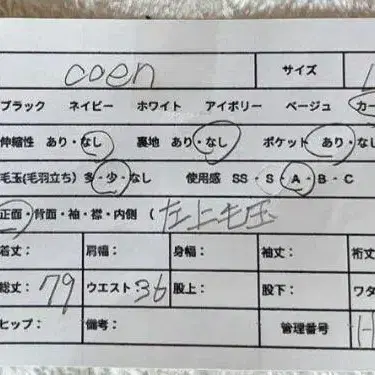 coen サイズ
ブラック ネイビー ホワイト アイボリー ベージュ カー
伸縮性 あり・なし 裏地 あり・なし ポケット あり・なし
毛玉(毛羽立ち) 多・少・なし 使用感 SS・S・A・B・C
正面・背面・袖・襟・内側 ( 左上毛玉
着丈: 肩幅: 身幅: 袖丈: 裄丈
総丈: 79 ウエスト 36 股上: 股下: ワタ
ヒップ: 備考: 管理番号 H